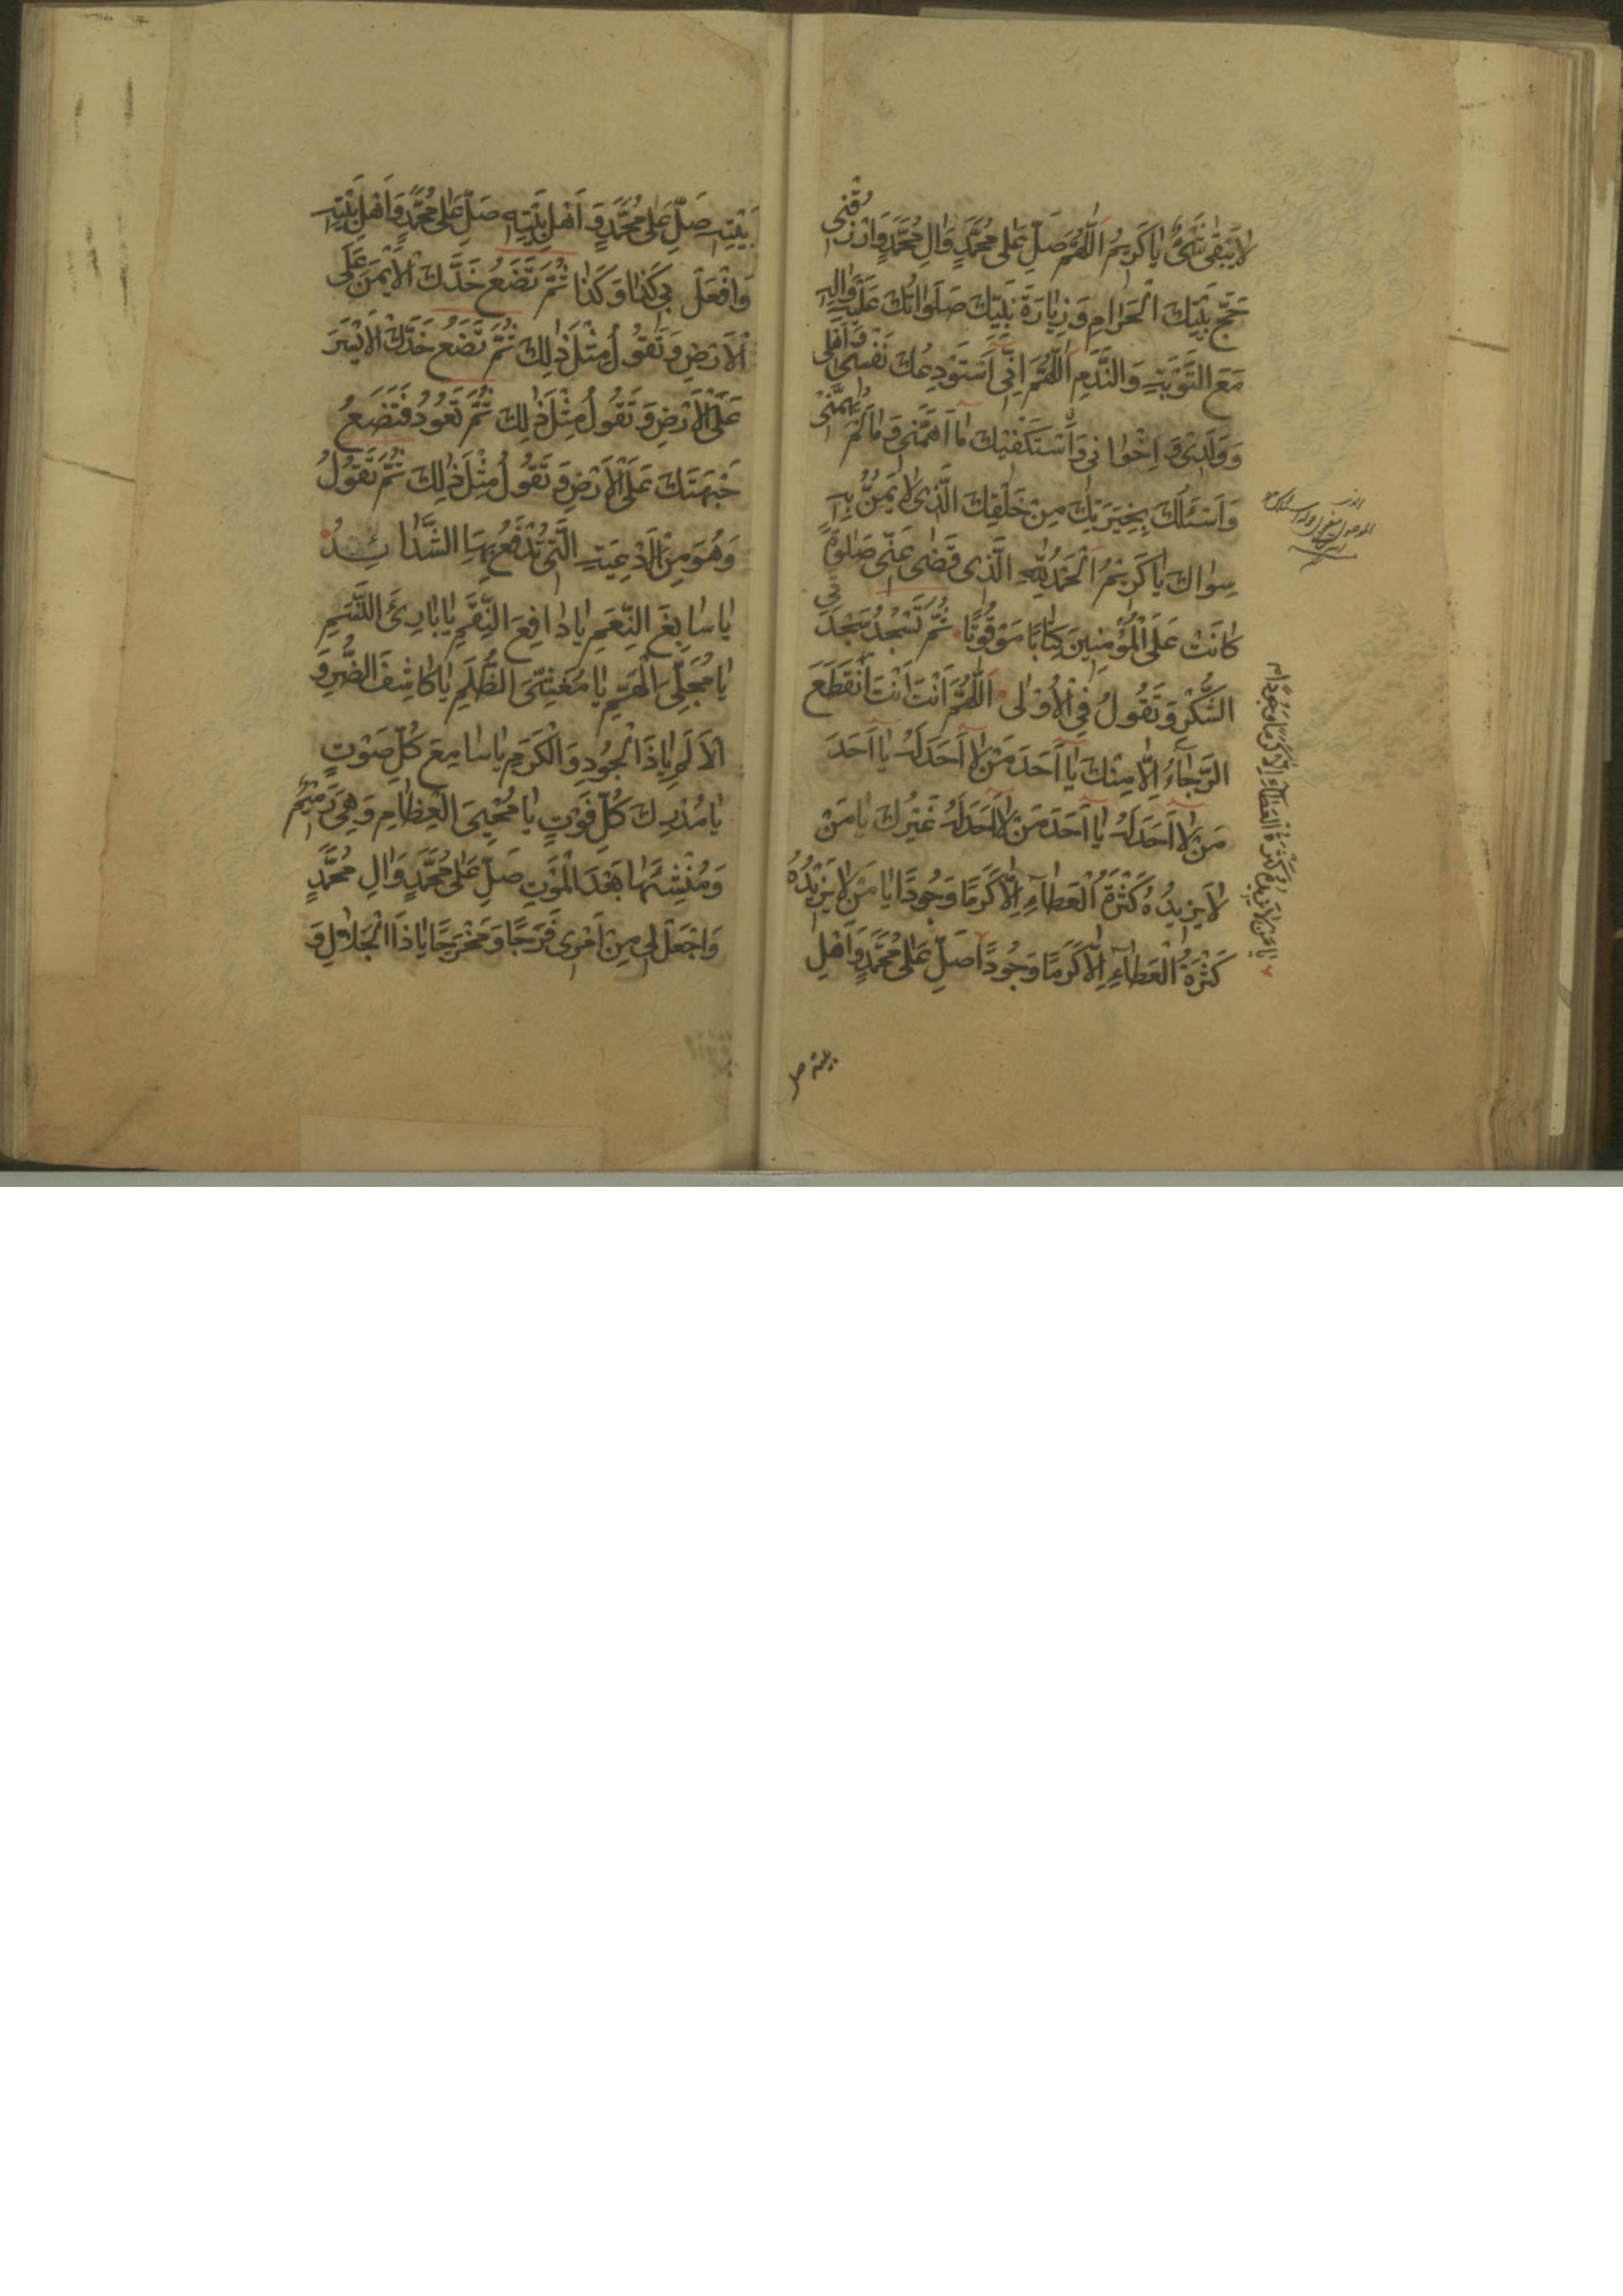 لاٰ يَبْقىٰ شَىْءٌ يٰا كَرِيمُ اَللّٰهُمَّ صَلِّ عَلىٰ مُحَمَّدٍ وَاٰلِ مُحَمَّدٍ وَارْزُقْنِى
حَجَّ بَيْتِكَ الْحَرٰامِ وَزِيٰارَةَ نَبِيِّكَ صَلَوٰاتُكَ عَلَيْهِ وَاٰلِهِ
مَعَ التَّوْبَةِ وَالنَّدَمِ اَللّٰهُمَّ اِنِّى اَسْتَوْدِعُكَ نَفْسِى وَاَهْلِى
وَوَلَدِى وَاِخْوٰانِى وَاَسْتَكْفِيْكَ مٰا اَهَمَّنِى وَمٰا لَمْ يُهِمَّنِىْ
وَاَسْئَلُكَ بِخِيَرَتِكَ مِنْ خَلْقِكَ الَّذِى لاٰ يَمُنُّ بِهِ
سِوٰاكَ يٰا كَرِيْمُ اَلْحَمْدُ لِلّٰهِ الَّذِى قَضٰى عَنِّى صَلٰوةً
كٰانَتْ عَلَى الْمُؤْمِنِينَ كِتٰابًا مَوْقُوتًا ثُمَّ تَسْجُدُ سَجْدَتَىِ
الشُّكْرِ وَتَقُولُ فِى الْاُوْلىٰ اَللّٰهُمَّ اَنْتَ اَنْتَ اِنْقَطَعَ
الرَّجٰآءُ اِلّٰا مِنْكَ يٰا اَحَدَ مَنْ لاٰ اَحَدَ لَهُ يٰا اَحَدَ
مَنْ لاٰ اَحَدَ لَهُ يٰا اَحَدَ مَنْ لاٰ اَحَدَ لَهُ غَيْرُكَ يٰا مَنْ
لاٰ يَزِيدُهُ كَثْرَةُ الْعَطٰآءِ اِلّٰا كَرَمًا وَجُودًا يٰا مَنْ لاٰ يَزِيْدُهُ
كَثْرَةُ الْعَطٰآءِ اِلّٰا كَرَمًا وَجُودًا صَلِّ عَلىٰ مُحَمَّدٍ وَاَهْلِ
يٰا مَنْ لاٰ يَزِيدُهُ كَثْرَةُ الْعَطٰآءِ اِلّٰا كَرَمًا وَجُودًا
بيته صل
بَيْتِهِ صَلِّ عَلىٰ مُحَمَّدٍ وَ اَهْلِ بَيْتِهِ صَلِّ عَلىٰ مُحَمَّدٍ وَاَهْلِ بَيْتِهِ
وَافْعَلْ بِى كَذٰا وَكَذٰا ثُمَّ تَضَعُ خَدَّكَ الْاَيْمَنَ عَلَى
الْاَرْضِ وَتَقُولُ مِثْلَ ذٰلِكَ ثُمَّ تَضَعُ خَدَّكَ الْاَيْسَرَ
عَلَى الْاَرْضِ وَتَقُولُ مِثْلَ ذٰلِكَ ثُمَّ تَعُودُ فَتَضَعُ
جَبْهَتَكَ عَلَى الْاَرْضِ وَتَقُولُ مِثْلَ ذٰلِكَ ثُمَّ تَقُولُ
وَهُوَ مِنْ الْاَدْعِيَةِ الَّتِى تُدْفَعُ بِهَا الشَّدٰائِدُ
يٰا سٰابِغَ النِّعَمِ يٰا دٰافِعَ النِّقَمِ يٰا بٰارِئَ النَّسَمِ
يٰا مُجَلِّىَ الْهَمِّ يٰا مُغَشِّىَ الظُّلَمِ يٰا كٰاشِفَ الضُّرِّ وَ
الْاَلَمِ يٰا ذَا الْجُودِ وَالْكَرَمِ يٰا سٰامِعَ كُلِّ صَوْتٍ
يٰا مُدْرِكَ كُلِّ فَوْتٍ يٰا مُحْيِىَ الْعِظٰامِ وَهِىَ رَمِيْمٌ
وَمُنْشِئَهٰا بَعْدَ الْمَوْتِ صَلِّ عَلىٰ مُحَمَّدٍ وَاٰلِ مُحَمَّدٍ
وَاجْعَلْ لِى مِنْ اَمْرِى فَرَجًا وَمَخْرَجًا يٰا ذَا الْجَلاٰلِ وَ